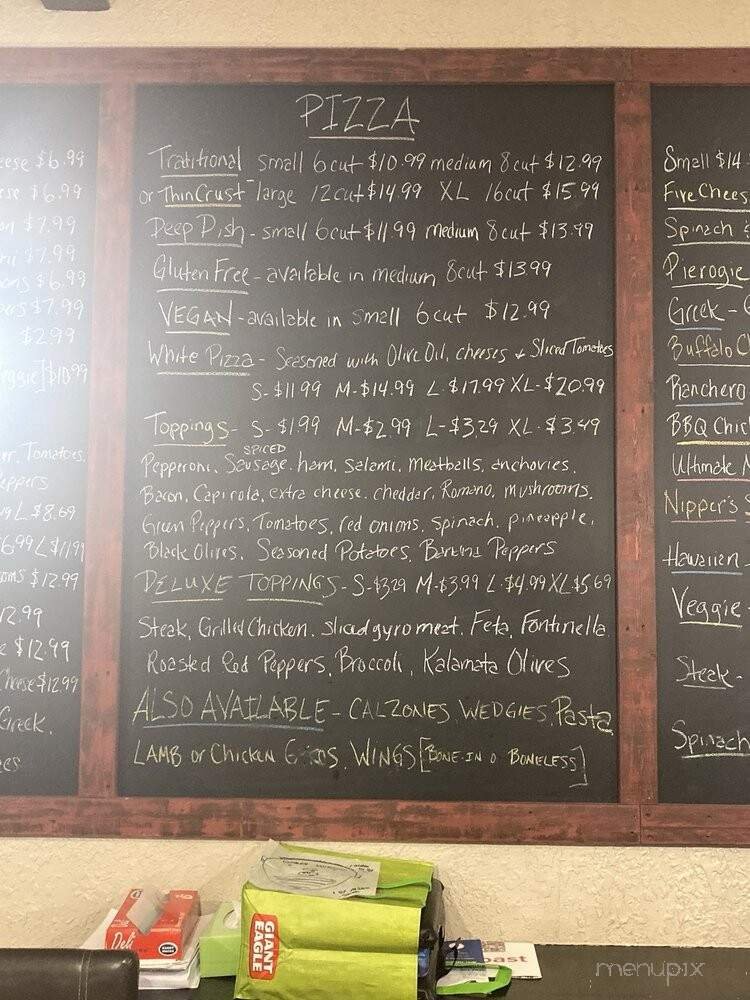 PIZZA
Traditional small 6 cut $10.99 medium 8 cut $12.99
or Thin Crust - large 12 cut $14.99 XL 16 cut $15.99
Deep Dish - small 6 cut $11.99 medium 8 cut $13.99
Gluten Free - available in medium 8 cut $13.99
VEGAN - available in small 6 cut $12.99
White Pizza - Seasoned with Olive Oil, cheeses & Sliced Tomatoes
S-$11.99 M-$14.99 L-$17.99 XL-$20.99
Toppings - S-$1.99 M-$2.99 L-$3.29 XL-$3.49
SPICED
Pepperoni, Sausage, ham, Salami, Meatballs, anchovies,
Bacon, Capicola, extra cheese, cheddar, Romano, mushrooms,
Green Peppers, Tomatoes, red onions, spinach, pineapple,
Black Olives, Seasoned Potatoes, Banana Peppers
DELUXE TOPPINGS - S-$3.29 M-$3.99 L-$4.99 XL $5.69
Steak, Grilled Chicken, sliced gyro meat, Feta, Fontinella
Roasted Red Peppers, Broccoli, Kalamata Olives
ALSO AVAILABLE - CALZONES, WEDGIES, Pasta,
LAMB or Chicken WINGS [BONE-IN O BONELESS]
eese $6.99
$6.99
$7.99
$7.99
$6.99
$7.99
$2.99
eggie] $10.99
Tomatoes,
eppers
L $8.69
6.99 L $11.99
$12.99
12.99
$12.99
Cheese $12.99
Greek,
Small $14.
Five Chees
Spinach
Pierogie
Greek -
Buffalo C
Ranchero
BBQ Chic
Ultimate
Nipper's
Hawaiian -
Veggie
Steak -
Spinach
Deli
GIANT
EAGLE
oast
menupix